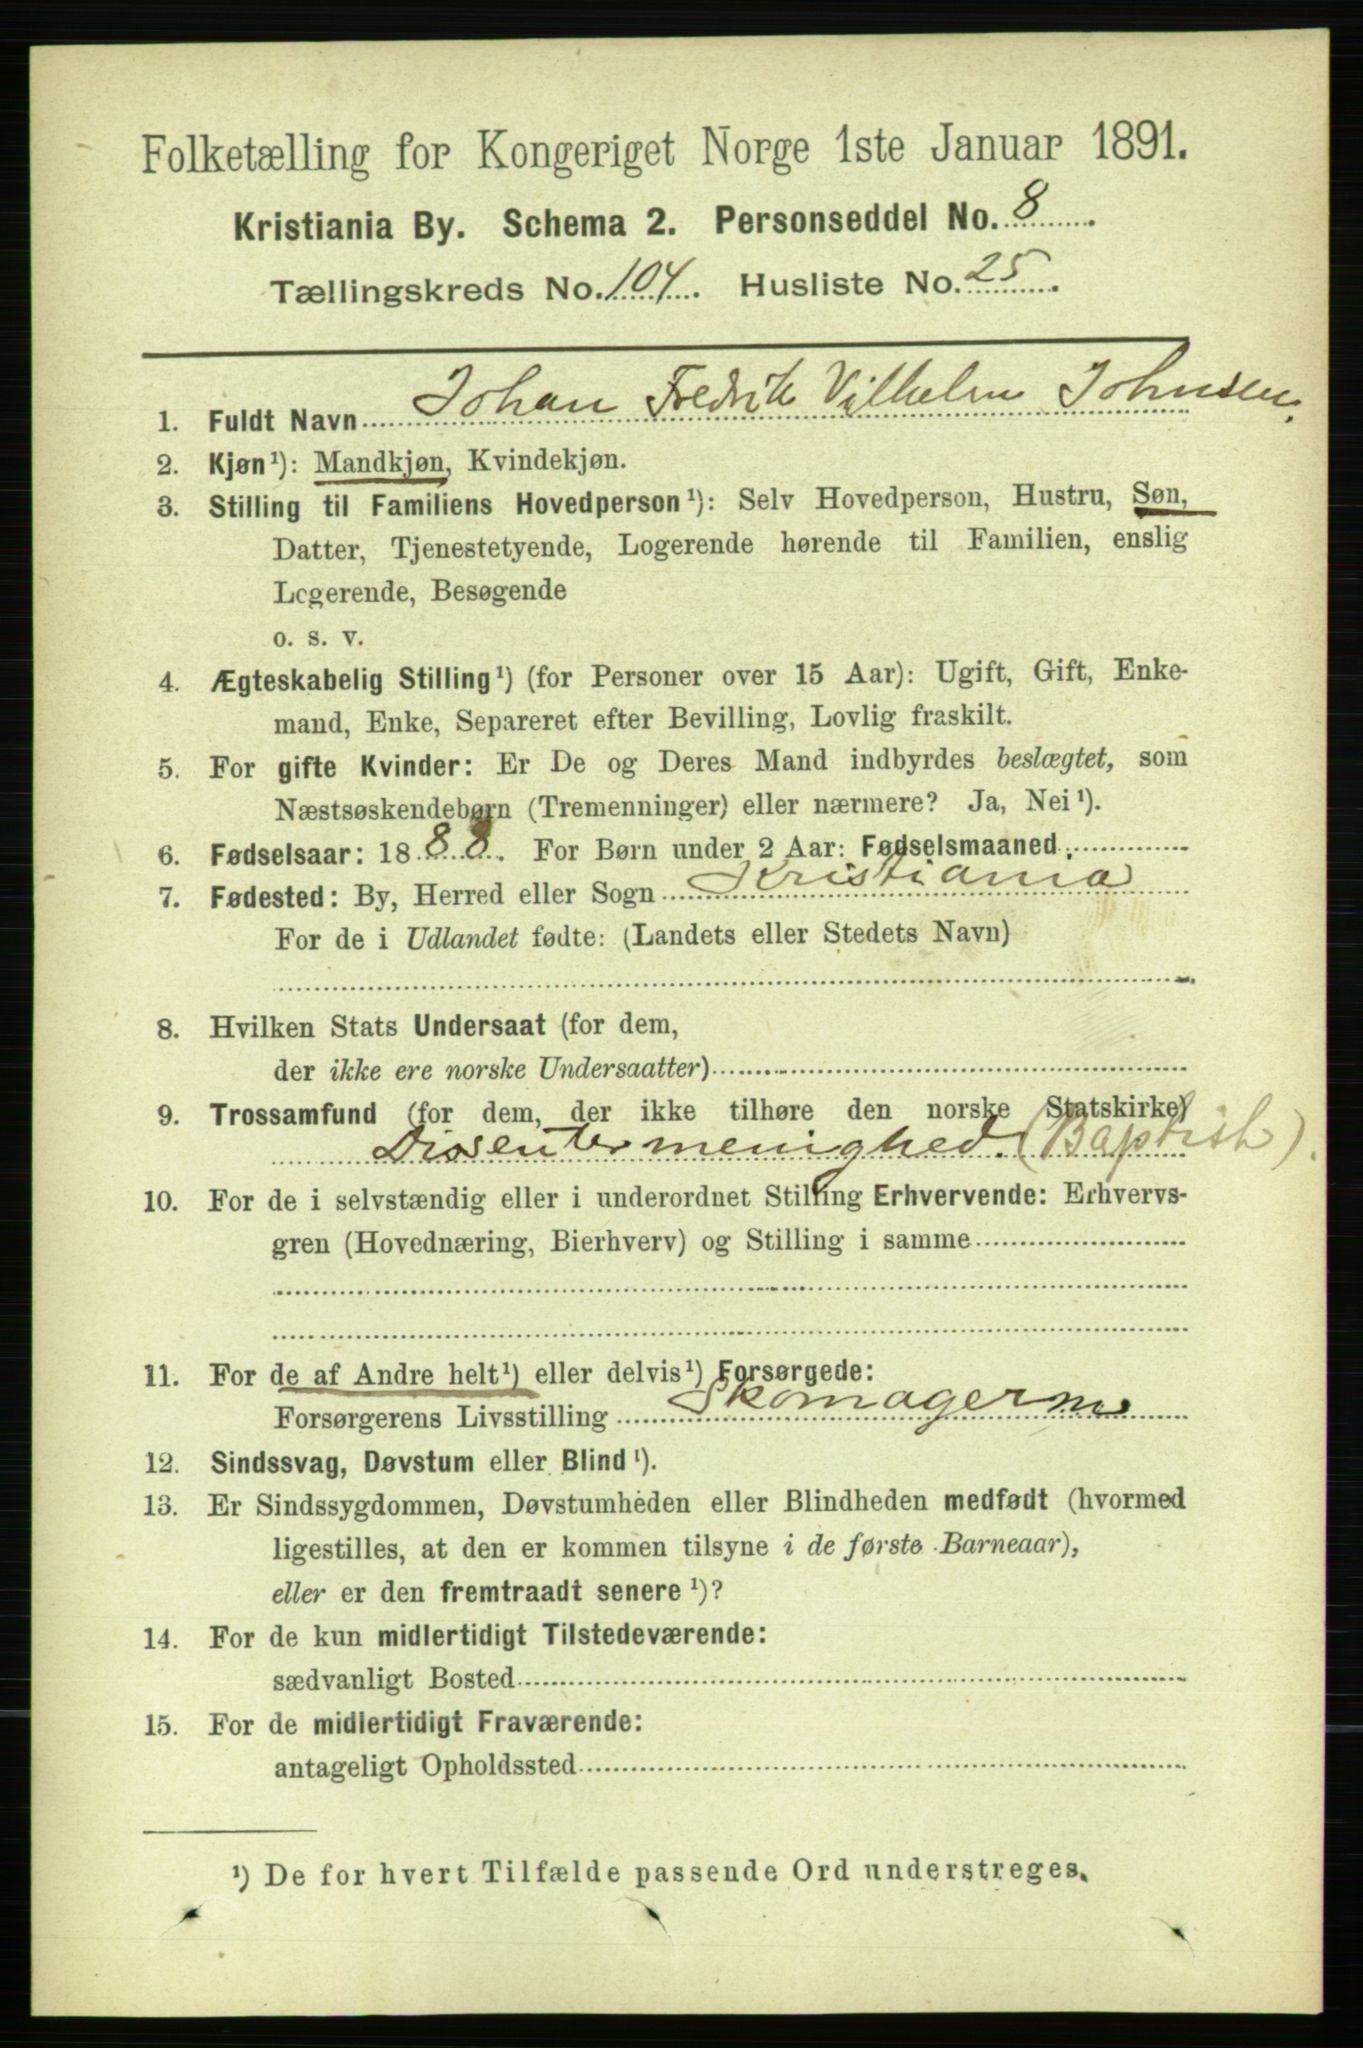 Folketælling for Kongeriget Norge 1ste Januar 1891.
Kristiania By. Schema 2. Personseddel No. 8.
Tællingskreds No. 104. Husliste No. 25.
1. Fuldt Navn Johan Fredrik Vilhelm Johnsen.
2. Kjøn ¹): Mandkjøn, Kvindekjøn.
3. Stilling til Familiens Hovedperson ¹): Selv Hovedperson, Hustru, Søn,
Datter, Tjenestetyende, Logerende hørende til Familien, enslig
Logerende, Besøgende
o. s. v.
4. Ægteskabelig Stilling ¹) (for Personer over 15 Aar): Ugift, Gift, Enke-
mand, Enke, Separeret efter Bevilling, Lovlig fraskilt.
5. For gifte Kvinder: Er De og Deres Mand indbyrdes beslægtet, som
Næstsøskendebørn (Tremenninger) eller nærmere? Ja, Nei ¹).
6. Fødselsaar: 1888. For Børn under 2 Aar: Fødselsmaaned.
7. Fødested: By, Herred eller Sogn Kristiania
For de i Udlandet fødte: (Landets eller Stedets Navn)
8. Hvilken Stats Undersaat (for dem,
der ikke ere norske Undersaatter)
9. Trossamfund (for dem, der ikke tilhøre den norske Statskirke)
Dissentermenighed. (Baptist).
10. For de i selvstændig eller i underordnet Stilling Erhvervende: Erhvervs-
gren (Hovednæring, Bierhverv) og Stilling i samme
11. For de af Andre helt ¹) eller delvis ¹) Forsørgede:
Forsørgerens Livsstilling Skomagersm
12. Sindssvag, Døvstum eller Blind ¹).
13. Er Sindssygdommen, Døvstumheden eller Blindheden medfødt (hvormed
ligestilles, at den er kommen tilsyne i de første Barneaar),
eller er den fremtraadt senere ¹)?
14. For de kun midlertidigt Tilstedeværende:
sædvanligt Bosted
15. For de midlertidigt Fraværende:
antageligt Opholdssted
¹) De for hvert Tilfælde passende Ord understreges.